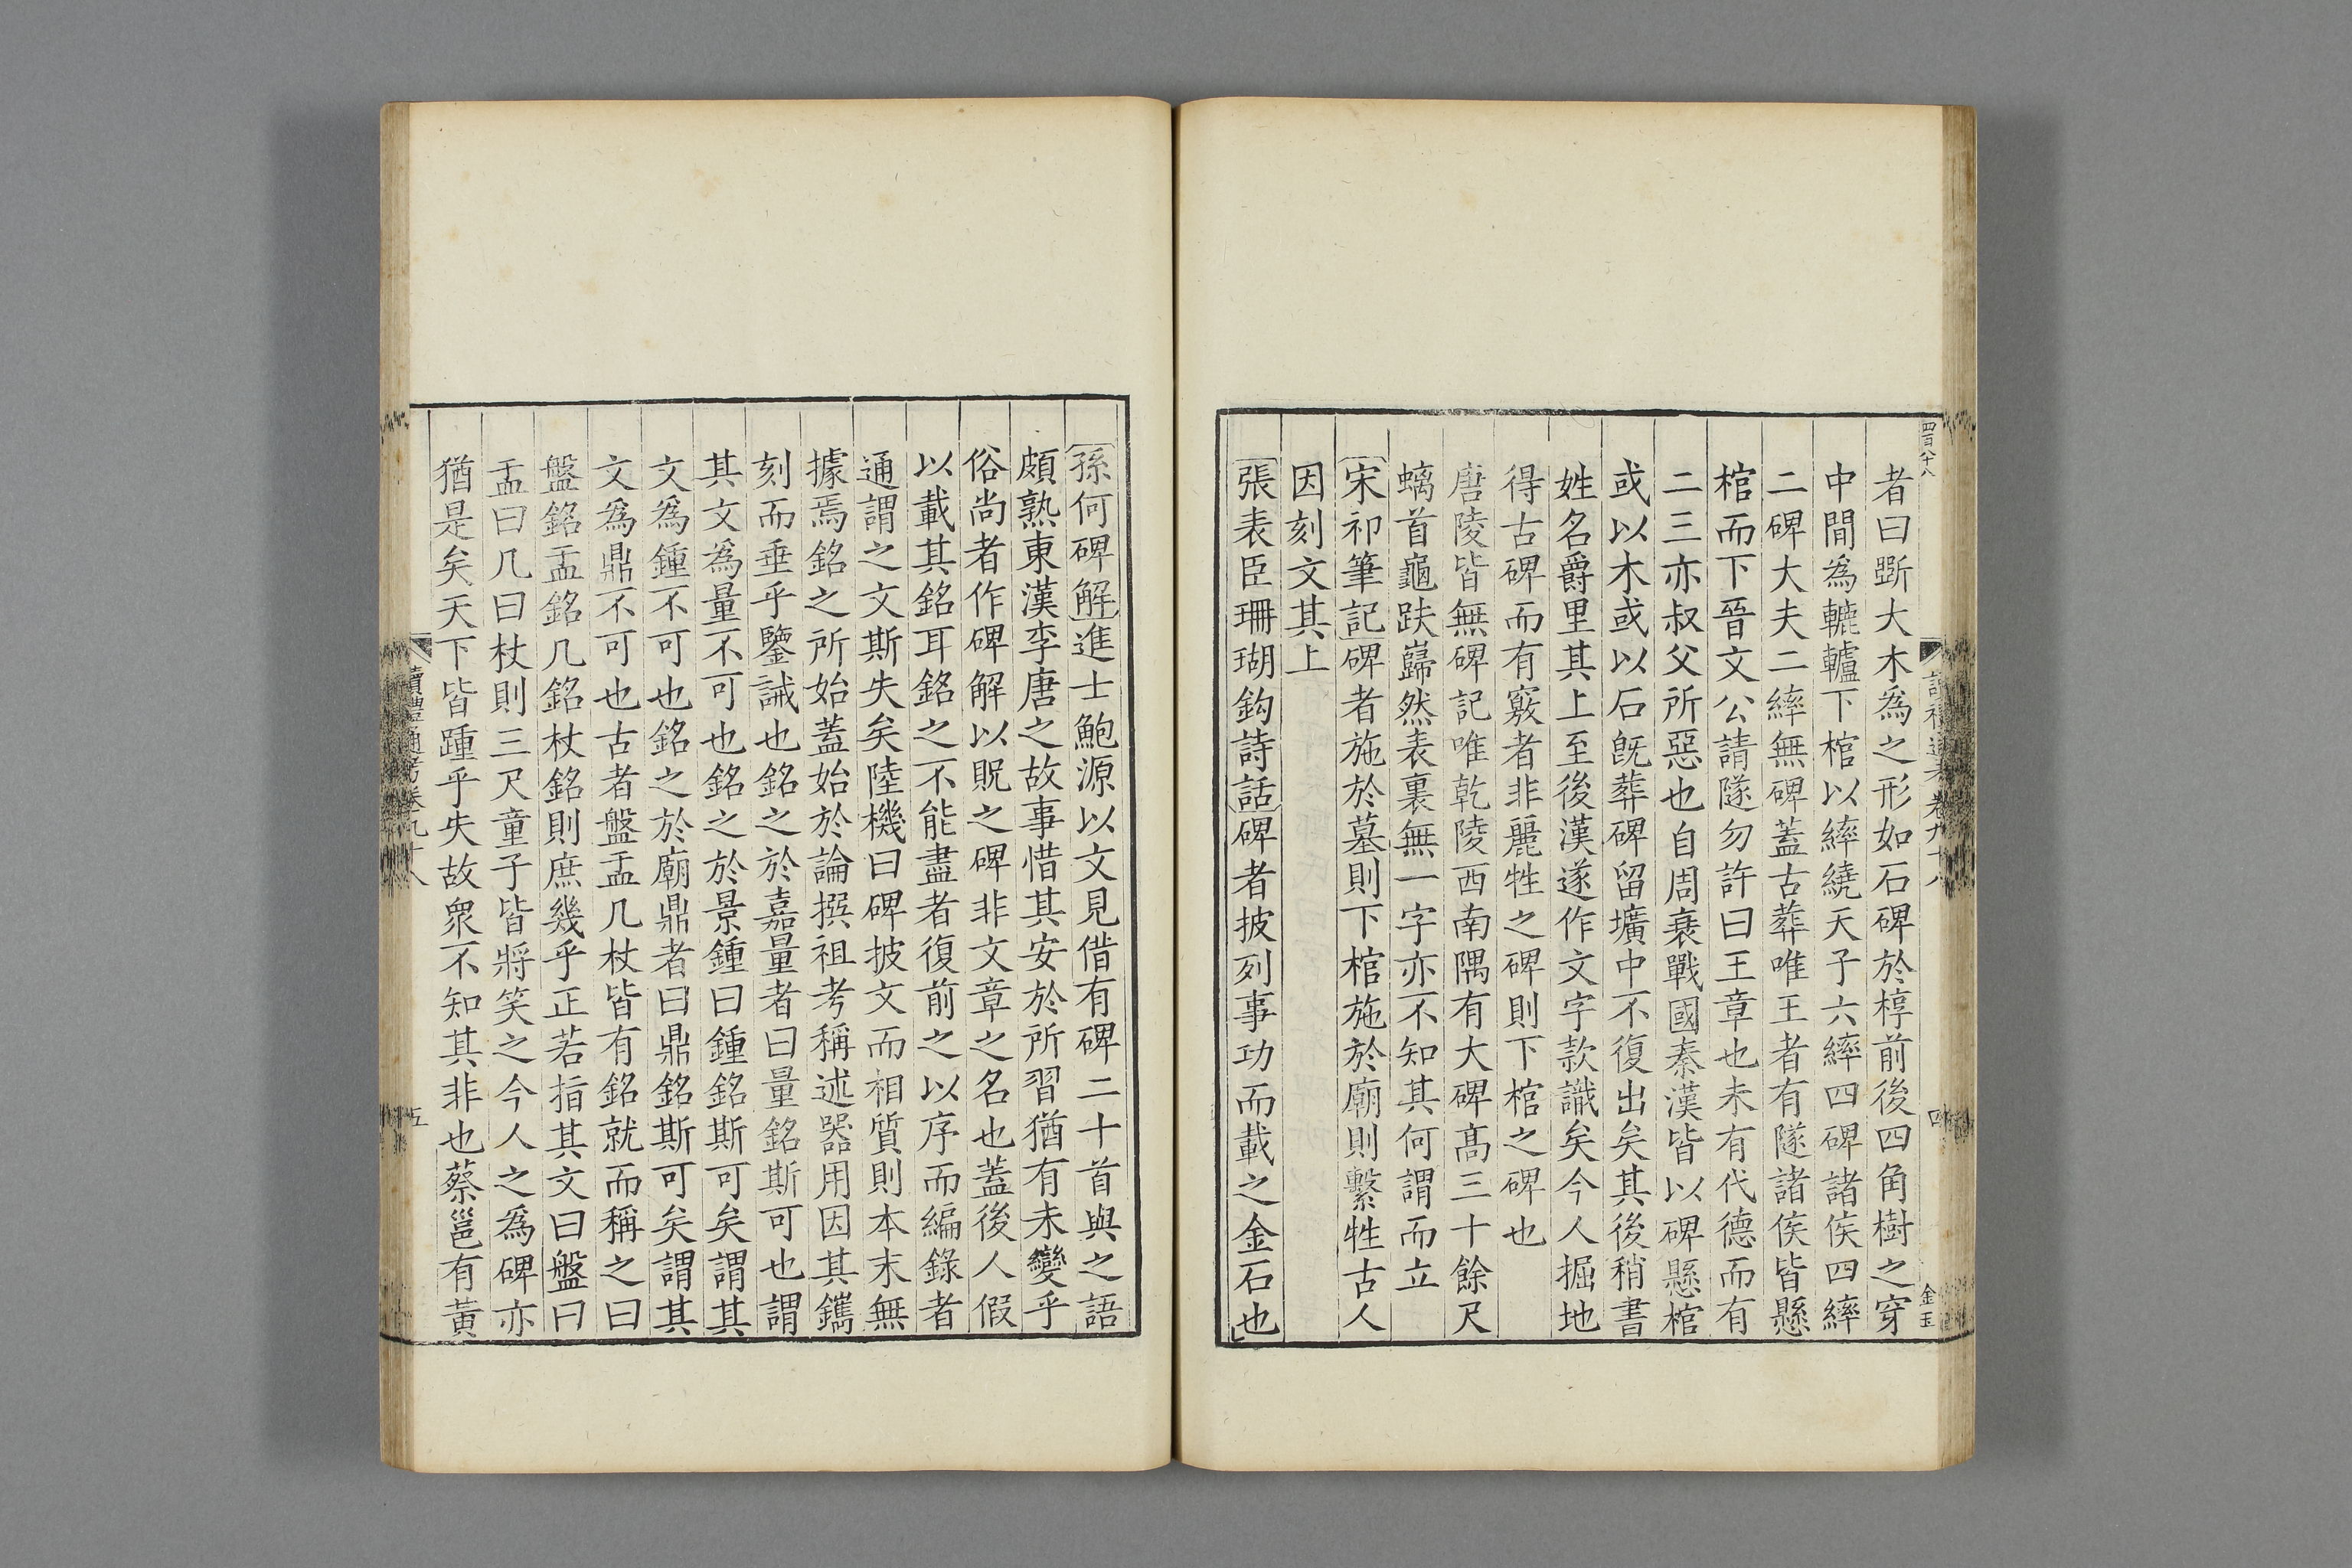 四百八十八
者曰斲大木爲之形如石碑於椁前後四角樹之穿
中間為轆轤下棺以繂繞天子六繂四碑諸侯四繂
二碑大夫二繂無碑蓋古葬唯王者有隧諸侯皆懸
棺而下晉文公請隧勿許曰王章也未有代德而有
二三亦叔父所惡也自周衰戰國秦漢皆以碑懸棺
或以木或以石旣葬碑留壙中不復出矣其後稍書
姓名爵里其上至後漢遂作文字款識矣今人掘地
得古碑而有竅者非麗牲之碑則下棺之碑也
唐陵皆無碑記唯乾陵西南隅有大碑髙三十餘尺
螭首龜趺巋然表裏無一字亦不知其何謂而立
宋祁筆記碑者施於墓則下棺施於廟則繫牲古人
因刻文其上
張表臣珊瑚鈎詩話碑者披列事功而載之金石也
讀禮通考 卷九十八
四
金玉
孫何碑解進士鮑源以文見借有碑二十首與之語
頗熟東漢李唐之故事惜其安於所習猶有未變乎
俗尚者作碑解以貺之碑非文章之名也蓋後人假
以載其銘耳銘之不能盡者復前之以序而編錄者
通謂之文斯失矣陸機曰碑披文而相質則本末無
據焉銘之所始蓋始於論撰祖考稱述器用因其鐫
刻而垂乎鑒誡也銘之於嘉量者曰量銘斯可也謂
其文為量不可也銘之於景鍾曰鍾銘斯可矣謂其
文為鍾不可也銘之於廟鼎者曰鼎銘斯可矣謂其
文為鼎不可也古者盤盂几杖皆有銘就而稱之曰
盤銘盂銘几銘杖銘則庶幾乎正若指其文曰盤曰
盂曰几曰杖則三尺童子皆將笑之今人之為碑亦
猶是矣天下皆踵乎失故衆不知其非也蔡邕有黃
讀禮通考卷九十八
五